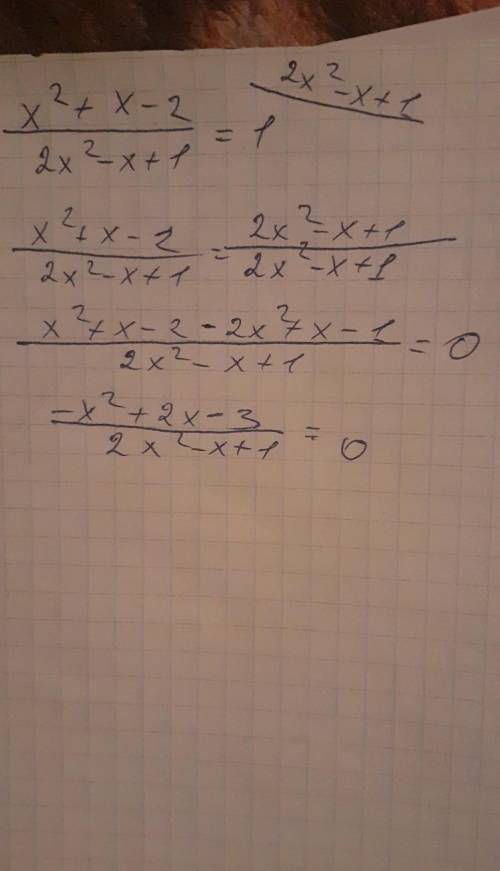 2x² - x + 1
x² + x - 2 / 2x² - x + 1 = 1
x² + x - 2 / 2x² - x + 1 = 2x² - x + 1 / 2x² - x + 1
x² + x - 2 - 2x² + x - 1 / 2x² - x + 1 = 0
-x² + 2x - 3 / 2x² - x + 1 = 0